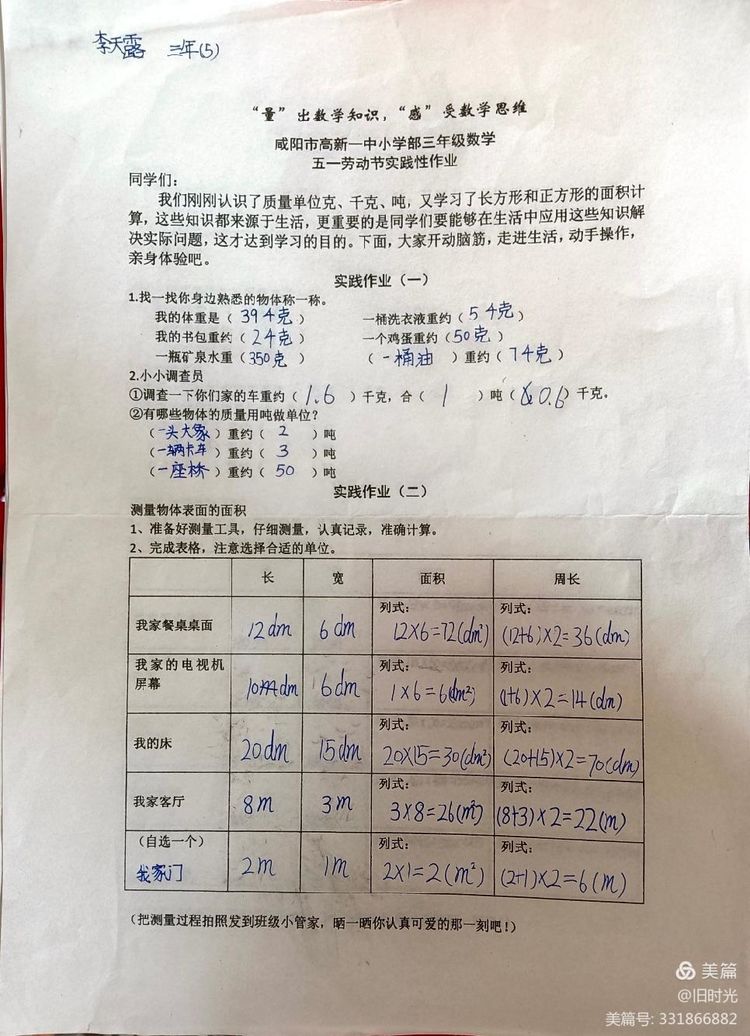 李天露 三年(5)
“量”出数学知识，“感”受数学思维
咸阳市高新一中小学部三年级数学
五一劳动节实践性作业
同学们：
我们刚刚认识了质量单位克、千克、吨，又学习了长方形和正方形的面积计
算，这些知识都来源于生活，更重要的是同学们要能够在生活中应用这些知识解
决实际问题，这才达到学习的目的。下面，大家开动脑筋，走进生活，动手操作，
亲身体验吧。
实践作业（一）
1.找一找你身边熟悉的物体称一称。
我的体重是（394克） 一桶洗衣液重约（54克）
我的书包重约（24克） 一个鸡蛋重约（50克）
一瓶矿泉水重（350克） （一桶油）重约（74克）
2.小小调查员
①调查一下你们家的车重约（1.6）千克，合（1）吨（0.6）千克。
②有哪些物体的质量用吨做单位？
（一头大象）重约（2）吨
（一辆卡车）重约（3）吨
（一座桥）重约（50）吨
实践作业（二）
测量物体表面的面积
1、准备好测量工具，仔细测量，认真记录，准确计算。
2、完成表格，注意选择合适的单位。
长 宽 面积 周长
列式： 列式：
我家餐桌桌面 12dm 6dm 12×6=72(dm²) (12+6)×2=36(dm)
我家的电视机 列式： 列式：
屏幕 10dm 6dm 1×6=6(dm²) (1+6)×2=14(dm)
列式： 列式：
我的床 20dm 15dm 20×15=30(dm²) (20+15)×2=70(dm)
列式： 列式：
我家客厅 8m 3m 3×8=26(m²) (8+3)×2=22(m)
（自选一个） 列式： 列式：
我家门 2m 1m 2×1=2(m²) (2+1)×2=6(m)
（把测量过程拍照发到班级小管家，晒一晒你认真可爱的那一刻吧！）
美篇
@旧时光
美篇号: 331866882